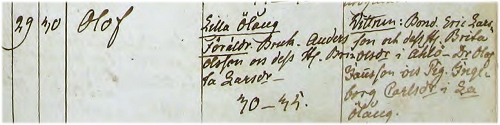 29 30 Olof
Lilla Ölång
Föräldr. Bruk. Anders
Olsson och dess H. Bri-
ta Larsdr
30–35.
Wittnen: Bond. Eric Lars-
son och dess H. Brita
Olsdr i Dr. Olof
Jansson och Pig. Ingeborg
Carlsdr i La
Ölång.